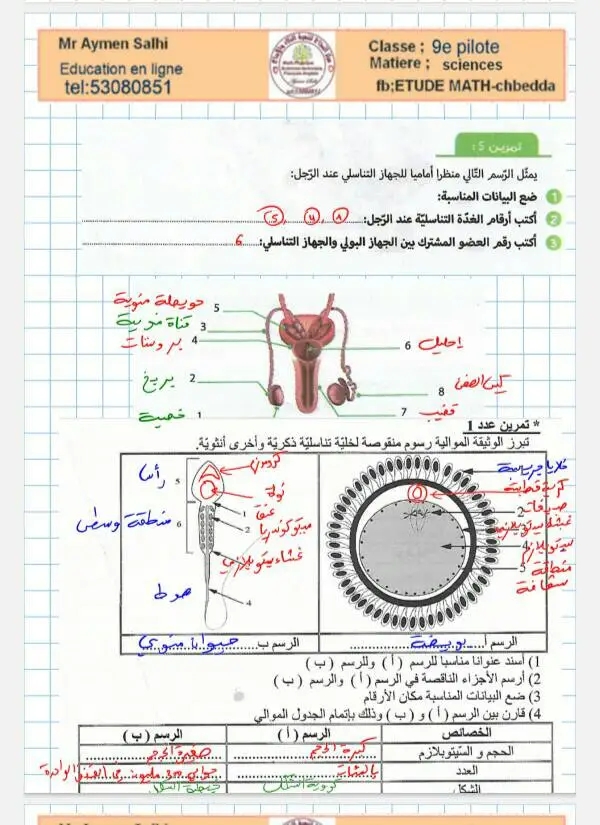 Mr Aymen Salhi
Education en ligne
tel:53080851
Classe ; 9e pilote
Matiere ; sciences
fb;ETUDE MATH-chbedda
تمرين 5 :
يمثّل الرّسم التّالي منظرا أماميا للجهاز التناسلي عند الرّجل:
1 ضع البيانات المناسبة:
2 أكتب أرقام الغدّة التناسليّة عند الرّجل: 1 ، 4 ، 5
3 أكتب رقم العضو المشترك بين الجهاز البولي والجهاز التناسلي: 6
حويصلة منوية 5
قناة منوية 3
بروستات 4
6 إحليل
بربخ 2
8 كيس الصفن
خصية 1
7 قضيب
* تمرين عدد 1
تبرز الوثيقة الموالية رسوم منقوصة لخليّة تناسليّة ذكريّة وأخرى أنثويّة.
رأس 5
نواة
عنق 1
منطقة وسطى 6
ميتوكوندريا 2
غشاء سيتوبلازمي
سوط
4
خلايا جريبية
كرية قطبية
2
غشاء سيتوبلازمي
4 سيتوبلازم
5 منطقة شفافة
الرسم أ بويضة
الرسم ب حيوان منوي
1) أسند عنوانا مناسبا للرسم ( أ ) وللرسم ( ب )
2) أرسم الأجزاء الناقصة في الرسم ( أ ) والرسم ( ب )
3) ضع البيانات المناسبة مكان الأرقام
4) قارن بين الرسم ( أ ) و ( ب ) وذلك بإتمام الجدول الموالي
الخصائص الرسم ( أ ) الرسم ( ب )
الحجم و السّيتوبلازم كبيرة الحجم صغيرة الحجم
العدد بالمئات
الشكل كروية الشكل
Mr Aymen Salhi